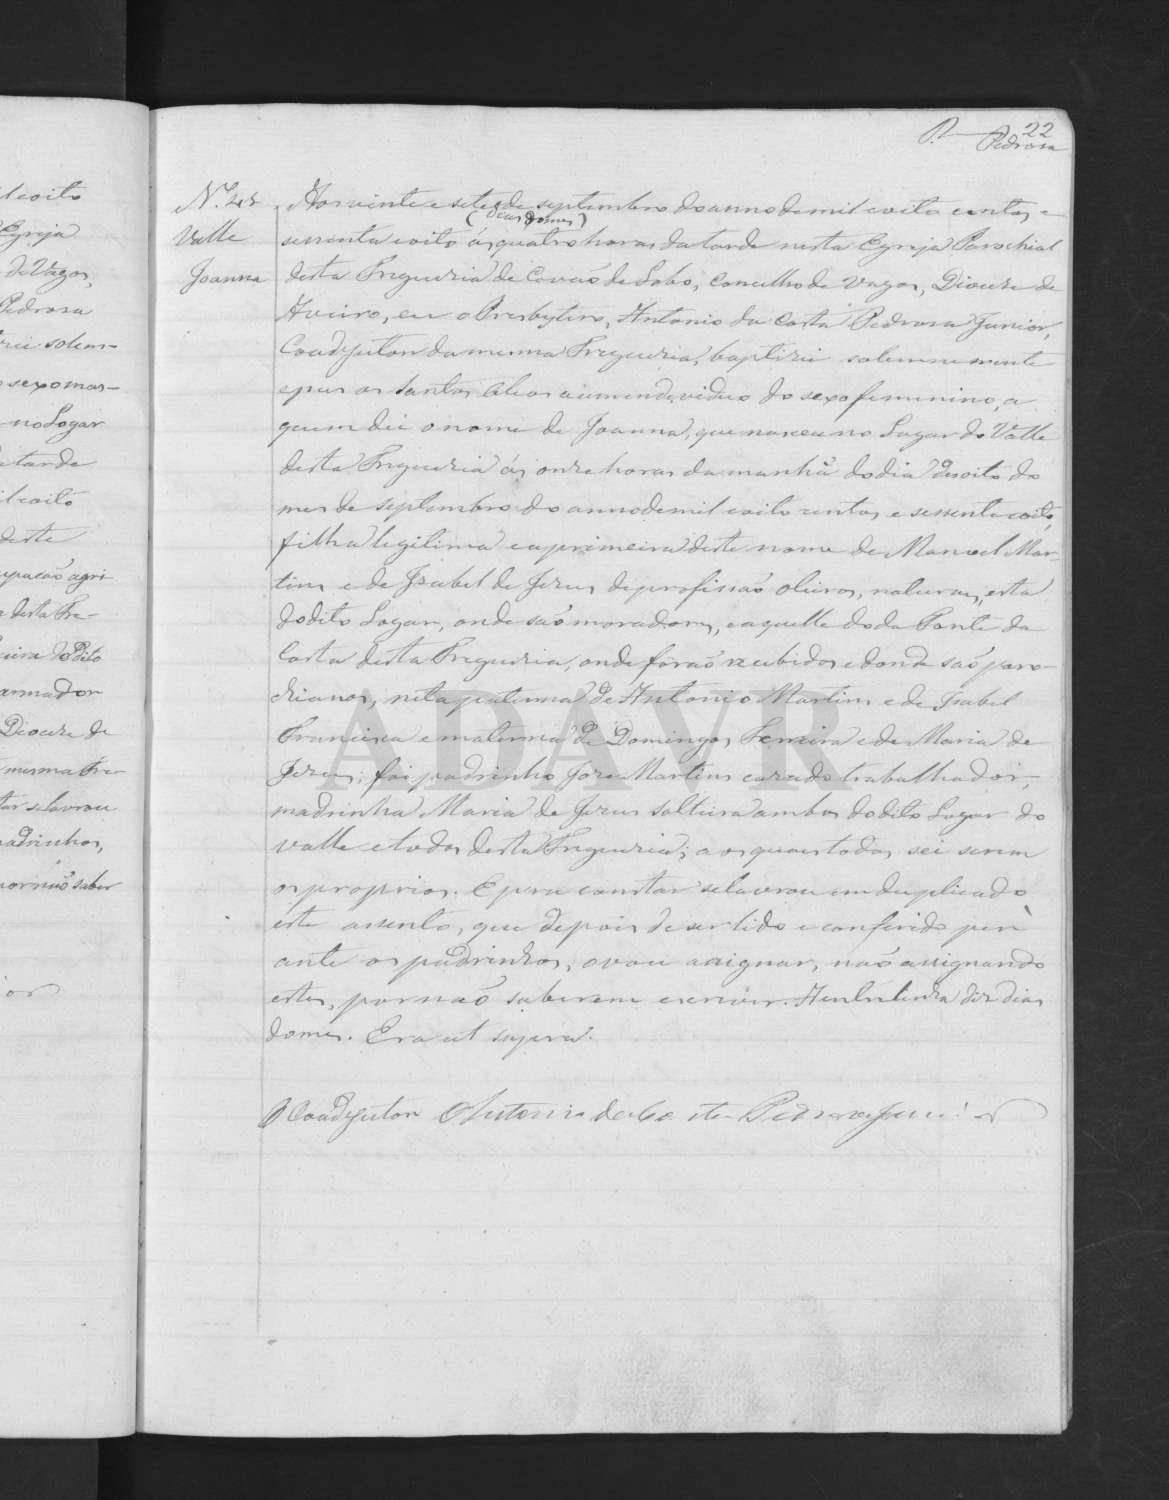 22
Pedrosa
il e oito
Egreja
de Vagos,
Pedrosa
solem-
o sexo mas-
no Logar
tarde
il e oito
deste
upacão agri
desta Fre-
do dito
Diocese de
mesma Fre-
se lavrou
padrinhos,
por não saber
or
Valle
Joanna
Aos vinte e sete de septembro do anno de mil e oito centos e
(dias do mes)
sessenta e oito ás quatro horas da tarde nesta Egreja Parochial
desta Freguezia de Covão de Lobo, Concelho de Vagos, Diocese de
Aveiro, eu o Presbytero, Antonio da Costa Pedrosa Junior,
Coadjutor da mesma Freguezia, baptizei solemnemente
e pus os Santos Oleos a um individuo do sexo femenino, a
quem dei o nome de Joanna, que nasceu no Lugar do Valle
desta Freguezia ás onze horas da manhã do dia desoito do
mes de septembro do anno de mil e oito centos e sessenta e oito,
filha legitima e a primeira deste nome de Manoel Mar-
tins e de Isabel de Jezus de profissão oleiros, naturaes, esta
do dito Logar, onde são moradores, e aquelle do da Ponte da
Costa desta Freguezia, onde forão recebidos e donde são paro-
chianos, neta paterna de Antonio Martins e de Isabel
Francisca e materna de Domingos Ferreira e de Maria de
Jezus; foi padrinho Joze Martins cazado trabalhador,
madrinha Maria de Jezus solteira ambos do dito Lugar do
Valle e todos desta Freguezia; aos quaes todos sei serem
os proprios. E para constar se lavrou em duplicado
este assento, que depois de ser lido e conferido per
ante os padrinhos, o vou assignar, não assignando
estes, por não saberem escrever. A entrelinha diz dias
do mes. Era ut supra.
O Coadjutor Antonio da Costa Pedrosa Junior
ADAVR